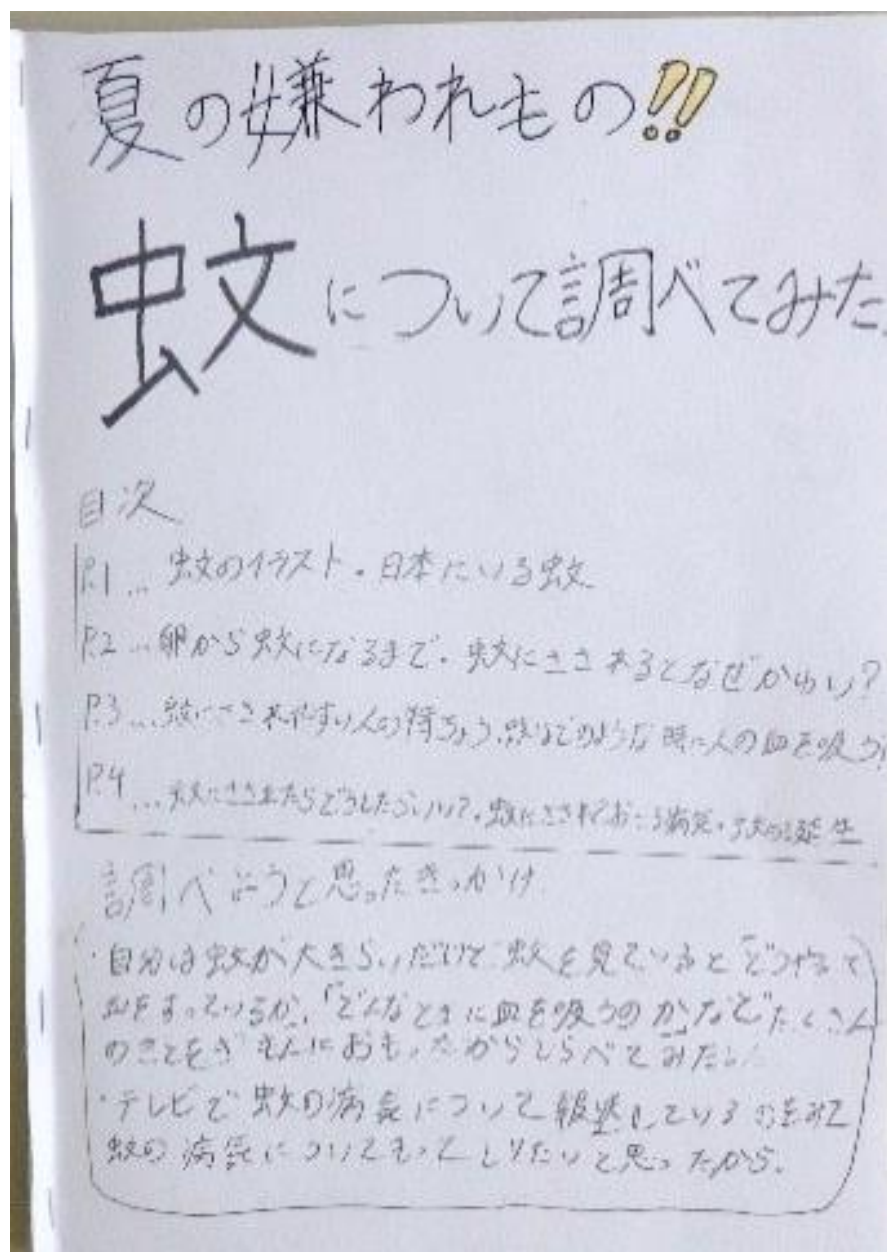 夏の嫌われもの!!
蚊について調べてみた
目次
P.1… 蚊のイラスト・日本にいる蚊
P.2…卵から蚊になるまで・蚊にさされるとなぜかゆい?
P.3…蚊にさされやすい人の特ちょう・蚊はどのような時に人の血を吸う?
P.4…蚊にさされたらどうしたらいい?・蚊にさされておこる病気・
調べようと思ったきっかけ
・自分は蚊が大きらいだけど蚊を見ていると「どうやって
血をすっているか」「どんなときに血を吸うのか」などたくさん
のことをぎもんにおもったからしらべてみたい
・テレビで蚊の病気について報道しているのをみて
蚊の病気についてもっとしりたいと思ったから。